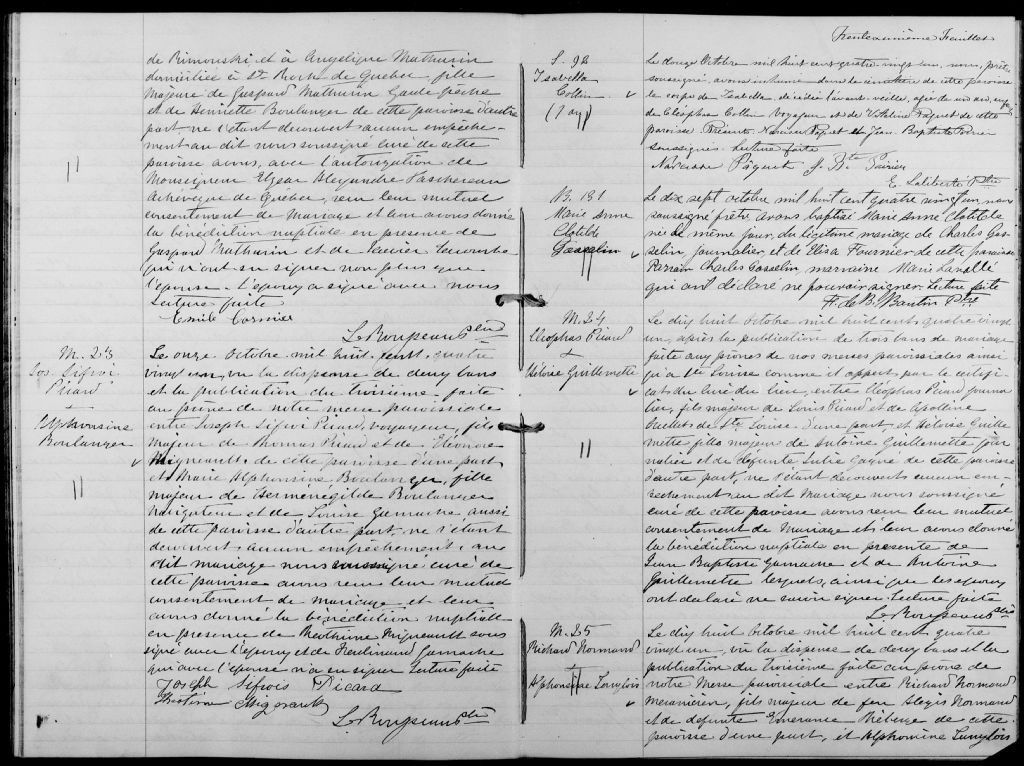 de Rimouski et à Angelique Mathurin
domiciliée à St Roch de Quebec fille
majeure de Gaspard Mathurin Garde pêche
et de Henriette Boulanger de cette paroisse d'autre
part ne s'étant decouvert aucun empêche-
ment au dit nous soussigné curé de cette
paroisse avons, avec l'autorization de
Monseigneur Elzear Alexandre Taschereau
Archevêque de Québec, reçu leur mutuel
consentement de Mariage et leur avons donné
la bénédiction nuptiale en presence de
Gaspard Mathurin et de Xavier
qui n'ont su signer non plus que
l'épouse. L'epoux a signé avec nous
Lecture faite
Emile
M. 23
Jos. Sifroi
Picard
+
Alphonsine
Boulanger
Le onze Octobre mil huit cent quatre
vingt un, vu la dispense de deux bans
et la publication du troisième faite
au prone de notre messe paroissiale
entre Joseph Sifroi Picard, voyageur, fils
majeur de Thomas Picard et de Eléonore
Migneault, de cette paroisse d'une part
et Marie Alphonsine Boulanger, fille
majeur de Hermenegilde Boulanger
Navigateur et de Louise Gamache aussi
de cette paroisse d'autre part, ne s'étant
decouvert aucun empêchement au
dit mariage nous soussigné curé de
cette paroisse avons reçu leur mutuel
consentement de mariage et leur
avons donné la bénédiction nuptiale
en presence de Mathurin Migneault sous
signé avec l'epoux et de Ferdinand Gamache
qui avec l'epouse n'a su signer Lecture faite
Joseph Sifrois Picard
Trente unième Feuillet
S. 92
Isabella
Collin
Le douze Octobre mil huit cent quatre vingt un, nous, prêtre
soussigné avons inhumé dans le cimetière de cette paroisse
le corps de Isabella, décédée l'avant veille, agée de un an, enfant
de Cléophas Collin Voyageur et de Vitaline Paquet de cette
paroisse Presents Narcisse Paquet et Jean Baptiste Poirier
soussignés. Lecture faite
Narcisse Paquet J. Bte Poirier
E. Laliberté Ptre
B. 131
Marie Anne
Clotilde
Gosselin
Le dix sept octobre mil huit cent quatre vingt un nous
soussigné prêtre avons baptisé Marie Anne Clotilde
née le même jour, du légitime mariage de Charles Gos-
selin, journalier, et de Elisa Fournier de cette paroisse
Parrain Charles Gosselin, marraine Marie
qui ont déclaré ne pouvoir signer. Lecture faite
M. 24
Cleophas Picard
+
Heloise Guillemette
Le dix huit Octobre mil huit cent quatre vingt
un, après la publication de trois bans de mariage
faite aux prones de nos messes paroissiales ainsi
qu'à Ste Louise comme il appert par le certifi-
cat du curé du lieu, entre Cléophas Picard, journa-
lier, fils majeur de Louis Picard et de Apolline
Ouellet de Ste Louise d'une part, et Heloise Guille
mette fille majeur de Antoine Guillemette jour
nalier et de défunte Julie Gagné de cette paroisse
d'autre part, ne s'étant decouvert aucun em-
pêchement au dit Mariage nous soussigné
curé de cette paroisse avons reçu leur mutuel
consentement de Mariage et leur avons donné
la bénédiction nuptiale en presence de
Jean Baptiste Gamache et de Antoine
Guillemette lesquels, ainsi que les epoux
ont declaré ne savoir signer Lecture faite
M. 25
Richard Normand
+
Alphonsine Langlois
Le dix huit Octobre mil huit cent quatre
vingt un, vu la dispense de deux bans et la
publication du troisième faite au prone de
notre Messe paroissiale entre Richard Normand
mecanicien, fils majeur de feu Alexis Normand
et de defunte Emerance Théberge de cette
paroisse d'une part, et Alphonsine Langlois